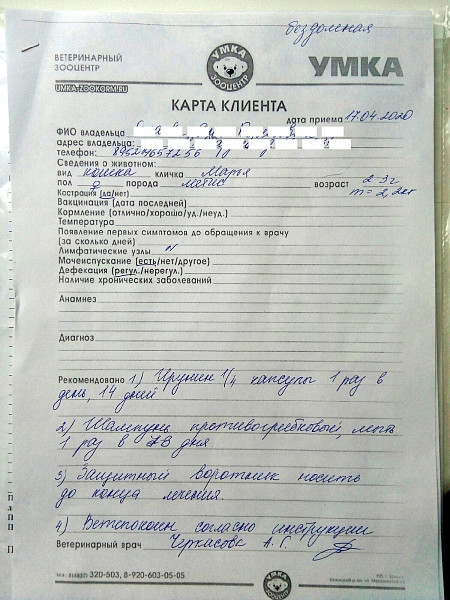 бездомная
ВЕТЕРИНАРНЫЙ
ЗООЦЕНТР
УМКА
ЗООЦЕНТР
УМКА
UMKA-ZOOKORM.RU
КАРТА КЛИЕНТА
дата приема 17.04.2020
ФИО владельца
адрес владельца:
телефон:
Сведения о животном:
вид кошка кличка Марья
пол ♀ порода метис возраст 2-3г
Кастрация (да/нет) m = 2,2кг
Вакцинация (дата последней)
Кормление (отлично/хорошо/уд./неуд.)
Температура
Появление первых симптомов до обращения к врачу
(за сколько дней)
Лимфатические узлы N
Мочеиспускание (есть/нет/другое)
Дефекация (регул./нерегул.)
Наличие хронических заболеваний
Анамнез
Диагноз
Рекомендовано 1) Ирунин 1/4 капсулы 1 раз в
день, 14 дней
2) Шампунь противогрибковый, мыть
1 раз в дня
3) Защитный воротник носить
до конца лечения.
4) Ветспокоин согласно инструкции
Ветеринарный врач Черкасова А. Г.
320-503, 8-920-603-05-05
УМКА